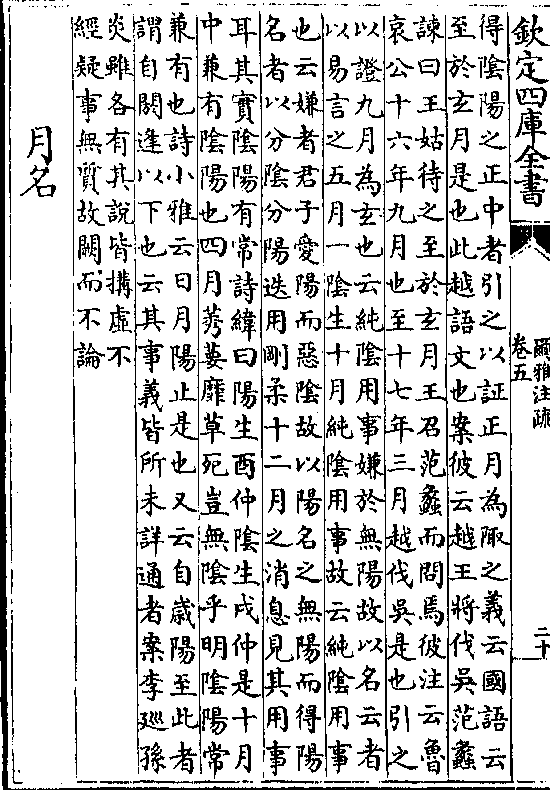 欽定四庫全書
爾雅注疏
卷五
二十
得陰陽之正中者引之以証正月為陬之義云國語云
至於玄月是也此越語文也案彼云越王將伐吳范蠡
諫曰王姑待之至於玄月王召范蠡而問焉彼注云魯
哀公十六年九月也至十七年三月越伐吳是也引之
以證九月為玄也云純陰用事嫌於無陽故以名云者
以易言之五月一陰生十月純陰用事故云純陰用事
也云嫌者君子愛陽而惡陰故以陽名之無陽而得陽
名者以分陰分陽迭用剛柔十二月之消息見其用事
耳其實陰陽有常詩緯曰陽生酉仲陰生戌仲是十月
中兼有陰陽也四月莠葽靡草死豈無陰乎明陰陽常
兼有也詩小雅云日月陽止是也又云自歲陽至此者
謂自閼逢以下也云其事義皆所未詳通者案李廵孫
炎雖各有其說皆搆虛不
經疑事無質故闕而不論
月名